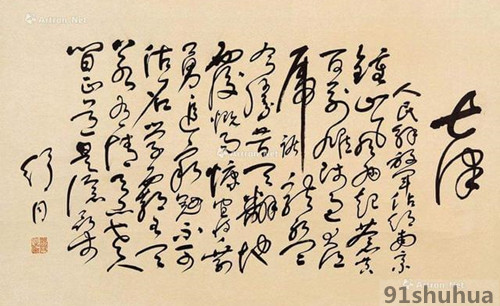 七律
人民解放军占领南京
鍾山风雨起苍黄
百万雄师过大江
虎踞龙盘今
胜昔天翻地
覆慨而慷宜将剩
勇追穷寇不可
沽名学霸王天
若有情天亦老人
间正道是沧桑
舒同
Artron.Net
91shuhua